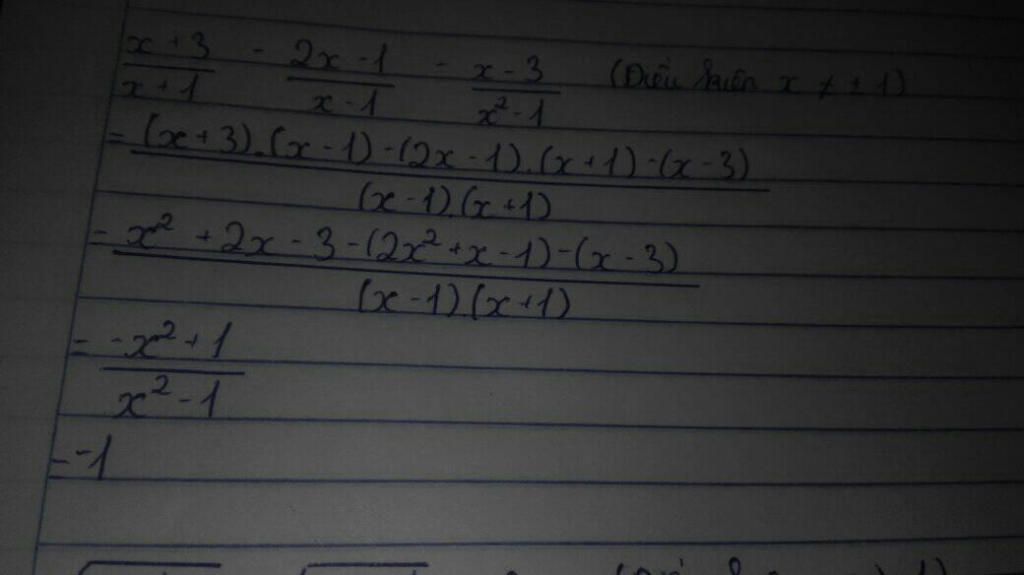 x + 3 / x + 1 - 2x - 1 / x - 1 - x - 3 / x² - 1 (Điều kiện x ≠ ± 1)
= (x + 3).(x - 1) - (2x - 1).(x + 1) - (x - 3) / (x - 1).(x + 1)
= x² + 2x - 3 - (2x² + x - 1) - (x - 3) / (x - 1)(x + 1)
= -x² + 1 / x² - 1
= -1